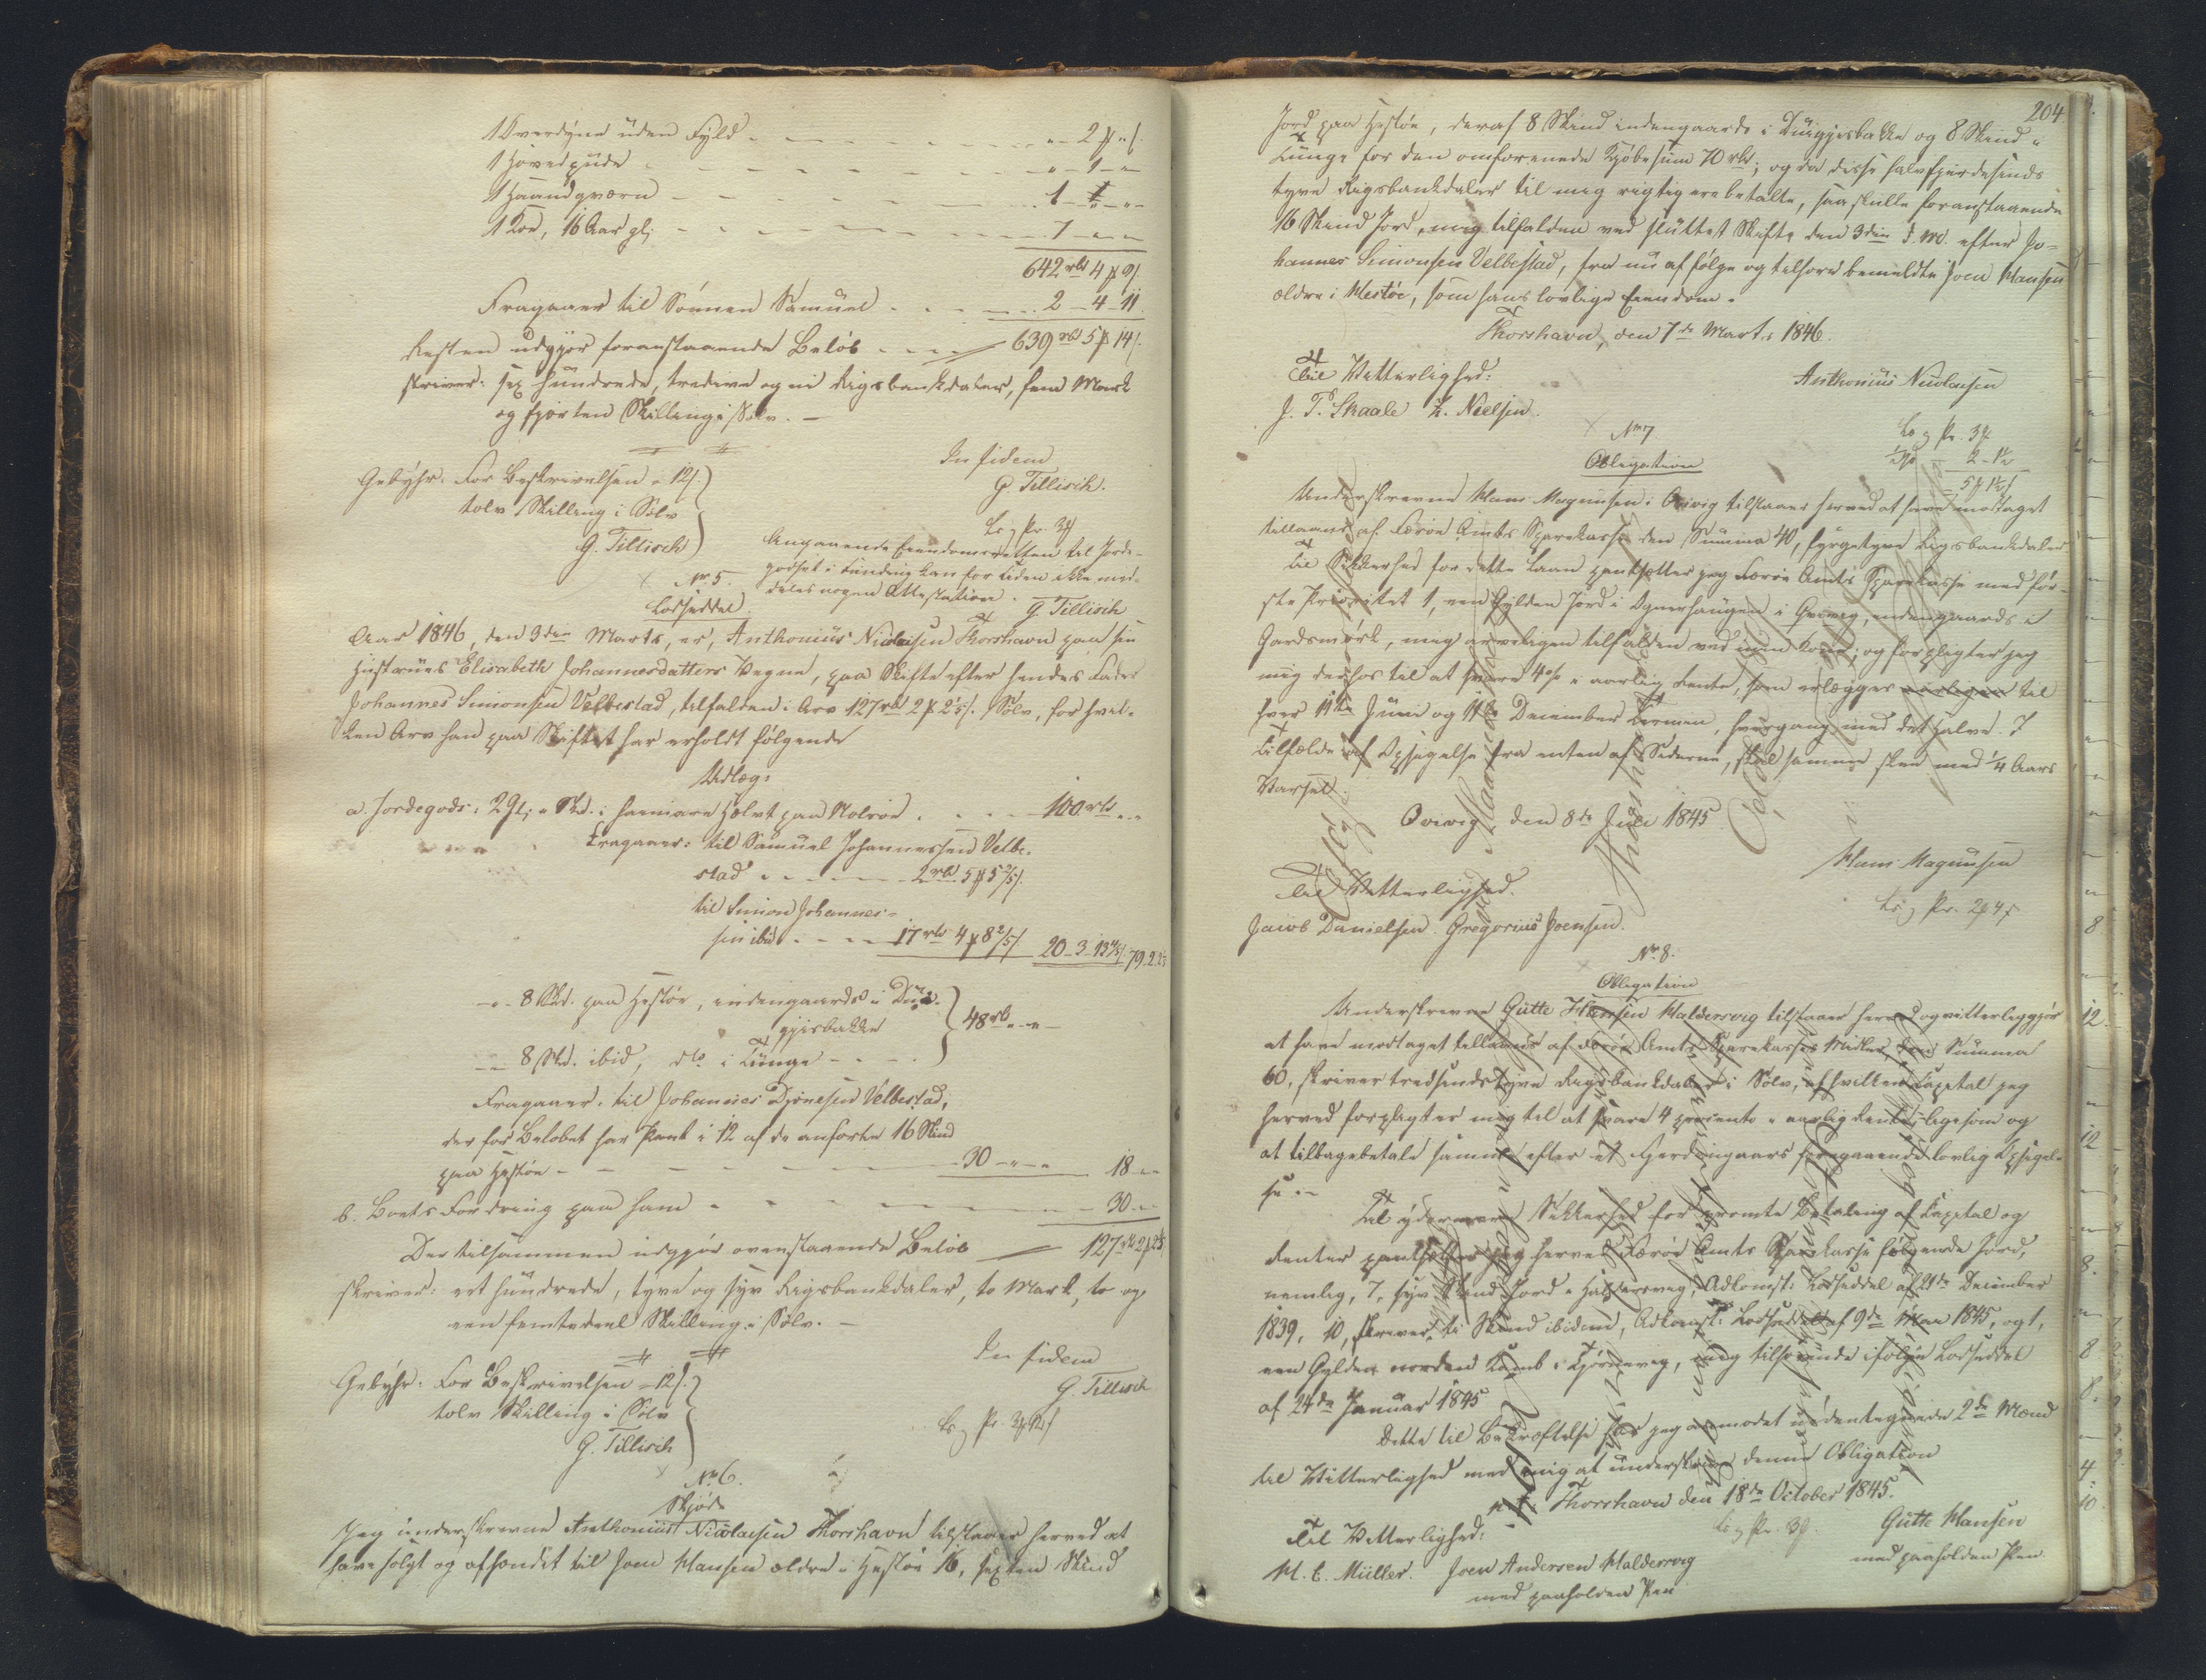 1 Overdyne uden Fyld - - - - „ - 2 ₰ „ /.
1 Hovedpude - - - - „ - 1 - „
1 Haandqværn - - - 1 - „ - „
1 Koe, 16 Aar gl; - - - 7 - „ - „
642 rbd 4 ₰ 9/.
Fragaaer til Sønnen Samuel - - - 2 - 4 - 11
Resten udgjør foranstaaende Beløb - - - 639 rbd 5 ₰ 14/.
skriver: sex hundrede, tredive og ni Rigsbankdaler, fem Mark
og fjorten Skilling i Sølv. -
In fidem
G. Tillisch.
Gebyhr. For Beskrivelsen - 12/.
tolv Skilling i Sølv
G. Tillisch
Angaaende Eiendomsretten til Jorde-
godset i Funding kan for Tiden ikke med-
deles nogen Attestation.
G. Tillisch
No 5.
Lodseddel
Aar 1846, den 3die Marts, er, Anthonius Nicolaisen Thorshavn paa sin
Hustrues Elisabeth Johannesdatters Vegne, paa Skifte efter hendes Fader
Johannes Simonsen Velbestad, tilfalden i Arv 127 rbd 2 ₰ 2⅕/. Sølv, for hvil-
ken Arv han paa Skiftet har erholdt følgende
Udlæg:
a. Jordegods: 2 Gl; „ Skd. i heimare Halvt paa Nolsøe - - - 100 rbd „ „
Fragaaer: til Samuel Johannessen Velbe-
stad - - - 2 rbd 5 ₰ 5⅖/.
til Simon Johannes-
sen ibid - - - 17 rbd 4 ₰ 8⅖/. 20 - 3 - 13⅘/. 79. 2. 2⅕
- „ - 8 Skd. paa Hestøe, indengaards i Dui-
gjisbakke
48 rb „ - „ -
- „ - 8 Skd. ibid, do i Tunge - - -
Fragaaer. til Johannes Djonesen Velbestad,
der for Beløbet har Pant i 12 af de anførte 16 Skind
paa Hestøe - - - 30 - „ - „ 18 - „
b. Boets Fordring paa ham - - - 30 - „
Der tilsammen udgjør ovenstaaende Beløb - 127 rbd 2 ₰ 2⅕
skriver: eet hundrede, tyve og syv Rigsbankdaler, to Mark, to og
een femtedeel Skilling i Sølv. -
In fidem
G. Tillisch
Gebyhr. For Beskrivelsen - 12/.
tolv Skilling i Sølv
G. Tillisch
No 6.
Skjøde
Jeg underskrevne Anthonius Nicolaisen Thorshavn tilstaaer herved at
have solgt og afhendet til Joen Hansen ældre i Hestøe 16, sexten Skind
204
Jord paa Hestøe, deraf 8 Skind indengaards i Duigjisbakke og 8 Skind „
Tunge for den omforenede Kjøbesum 70 rbd; og da disse halvfjerdesinds
tyve Rigsbankdaler til mig rigtig ere betalte, saa skulle foranstaaende
16 Skind Jord, mig tilfalden ved sluttet Skifte den 3die d. Md. efter Jo-
hannes Simonsen Velbestad, fra nu af følge og tilhøre bemeldte Joen Hansen
ældre i Hestøe, som hans lovlige Eiendom.
Thorshavn, den 7de Marts 1846.
Til Vitterlighed:
Anthonius Nicolaisen
J. P. Skaale L. Nielsen.
No 7
Obligation
Underskrevne Hans Magnusen i Qvivig tilstaaer herved at have modtaget
tillaans af Færøe Amts Sparekasse den Summa 40, fyrgetyve Rigsbankdaler
Til Sikkerhed for dette Laan pantsætter jeg Færøe Amts Sparekasse med før-
ste Prioritet 1, een Gylden Jord i Dynerhaugen i Qvivig, indengaards i
Gardsmørk, mig arveligen tilfalden ved min Kone; og forpligter jeg
mig derhos til at svare 4% i aarlig Rente, som erlægges aarligen til
hver 11te Juni og 11te December Termin, hvergang med det halve. I
Tilfælde af Opsigelse fra enten af Siderne, skal samme skee med 1/4 Aars
Varsel.
Qvivig den 8de Juli 1845
Hans Magnusen
Til Vitterlighed.
Jacob Danielsen Gregorius Joensen.
No 8.
Obligation
Underskrevne Gutte Hansen Haldersvig tilstaaer herved og vitterliggjør
at have modtaget tillaans af Færøe Amts Sparekasses Midler, den Summa
60, skriver tredsindstyve Rigsbankdaler i Sølv, af hvilken Capital jeg
herved forpligter mig til at svare 4 procento i aarlig Rente, ligesom og
at tilbagebetale samme efter et Fjerdingaars foregaaende lovlig Opsigel-
se. -
Til ydermere Sikkerhed for promte Betaling af Capital og
Renter pantsætter jeg herved Færøe Amts Sparekasse følgende Jord,
nemlig, 7, syv Skind Jord i Haldersvig, Adkomst: Lodseddel af 21de December
1839, 10, skriver ti Skind ibidem, Adkomst: Lodseddel af 9de Mai 1845, og 1,
een Gylden norden Kamb i Tjørnevig, mig tilhørende ifølge Lodseddel
af 24de Januar 1845
Dette til Bekræftelse har jeg anmodet undertegnede 2de Mænd
til Vitterlighed med mig at underskrive denne Obligation
p. t. Thorshavn den 18de October 1845.
Gutte Hansen
med paaholden Pen
Til Vitterlighed:
H. C. Müller. Joen Andersen Haldersvig
med paaholden Pen